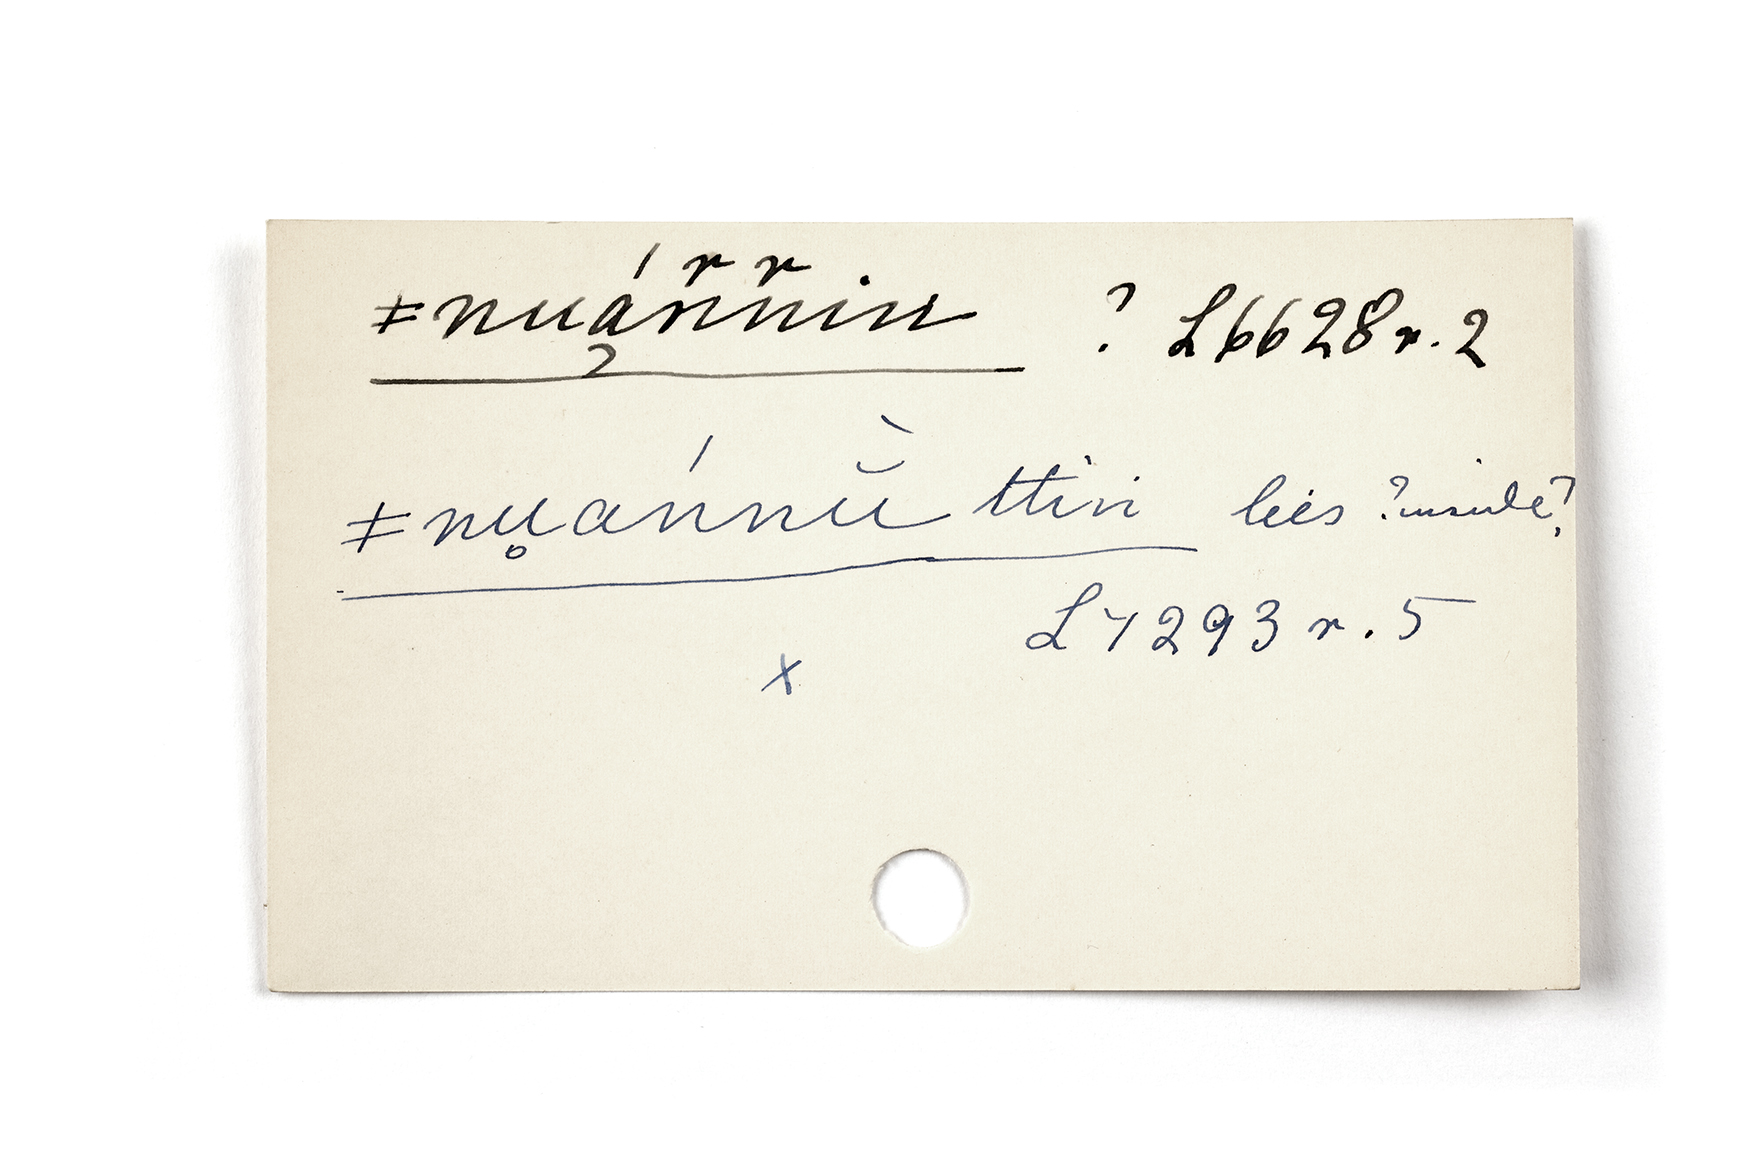 ǂnuą́r̃r̃in ? L6628r.2
ǂnu̥ánnṵ̀ ttiri lies ?inside?
L7293r.5
x